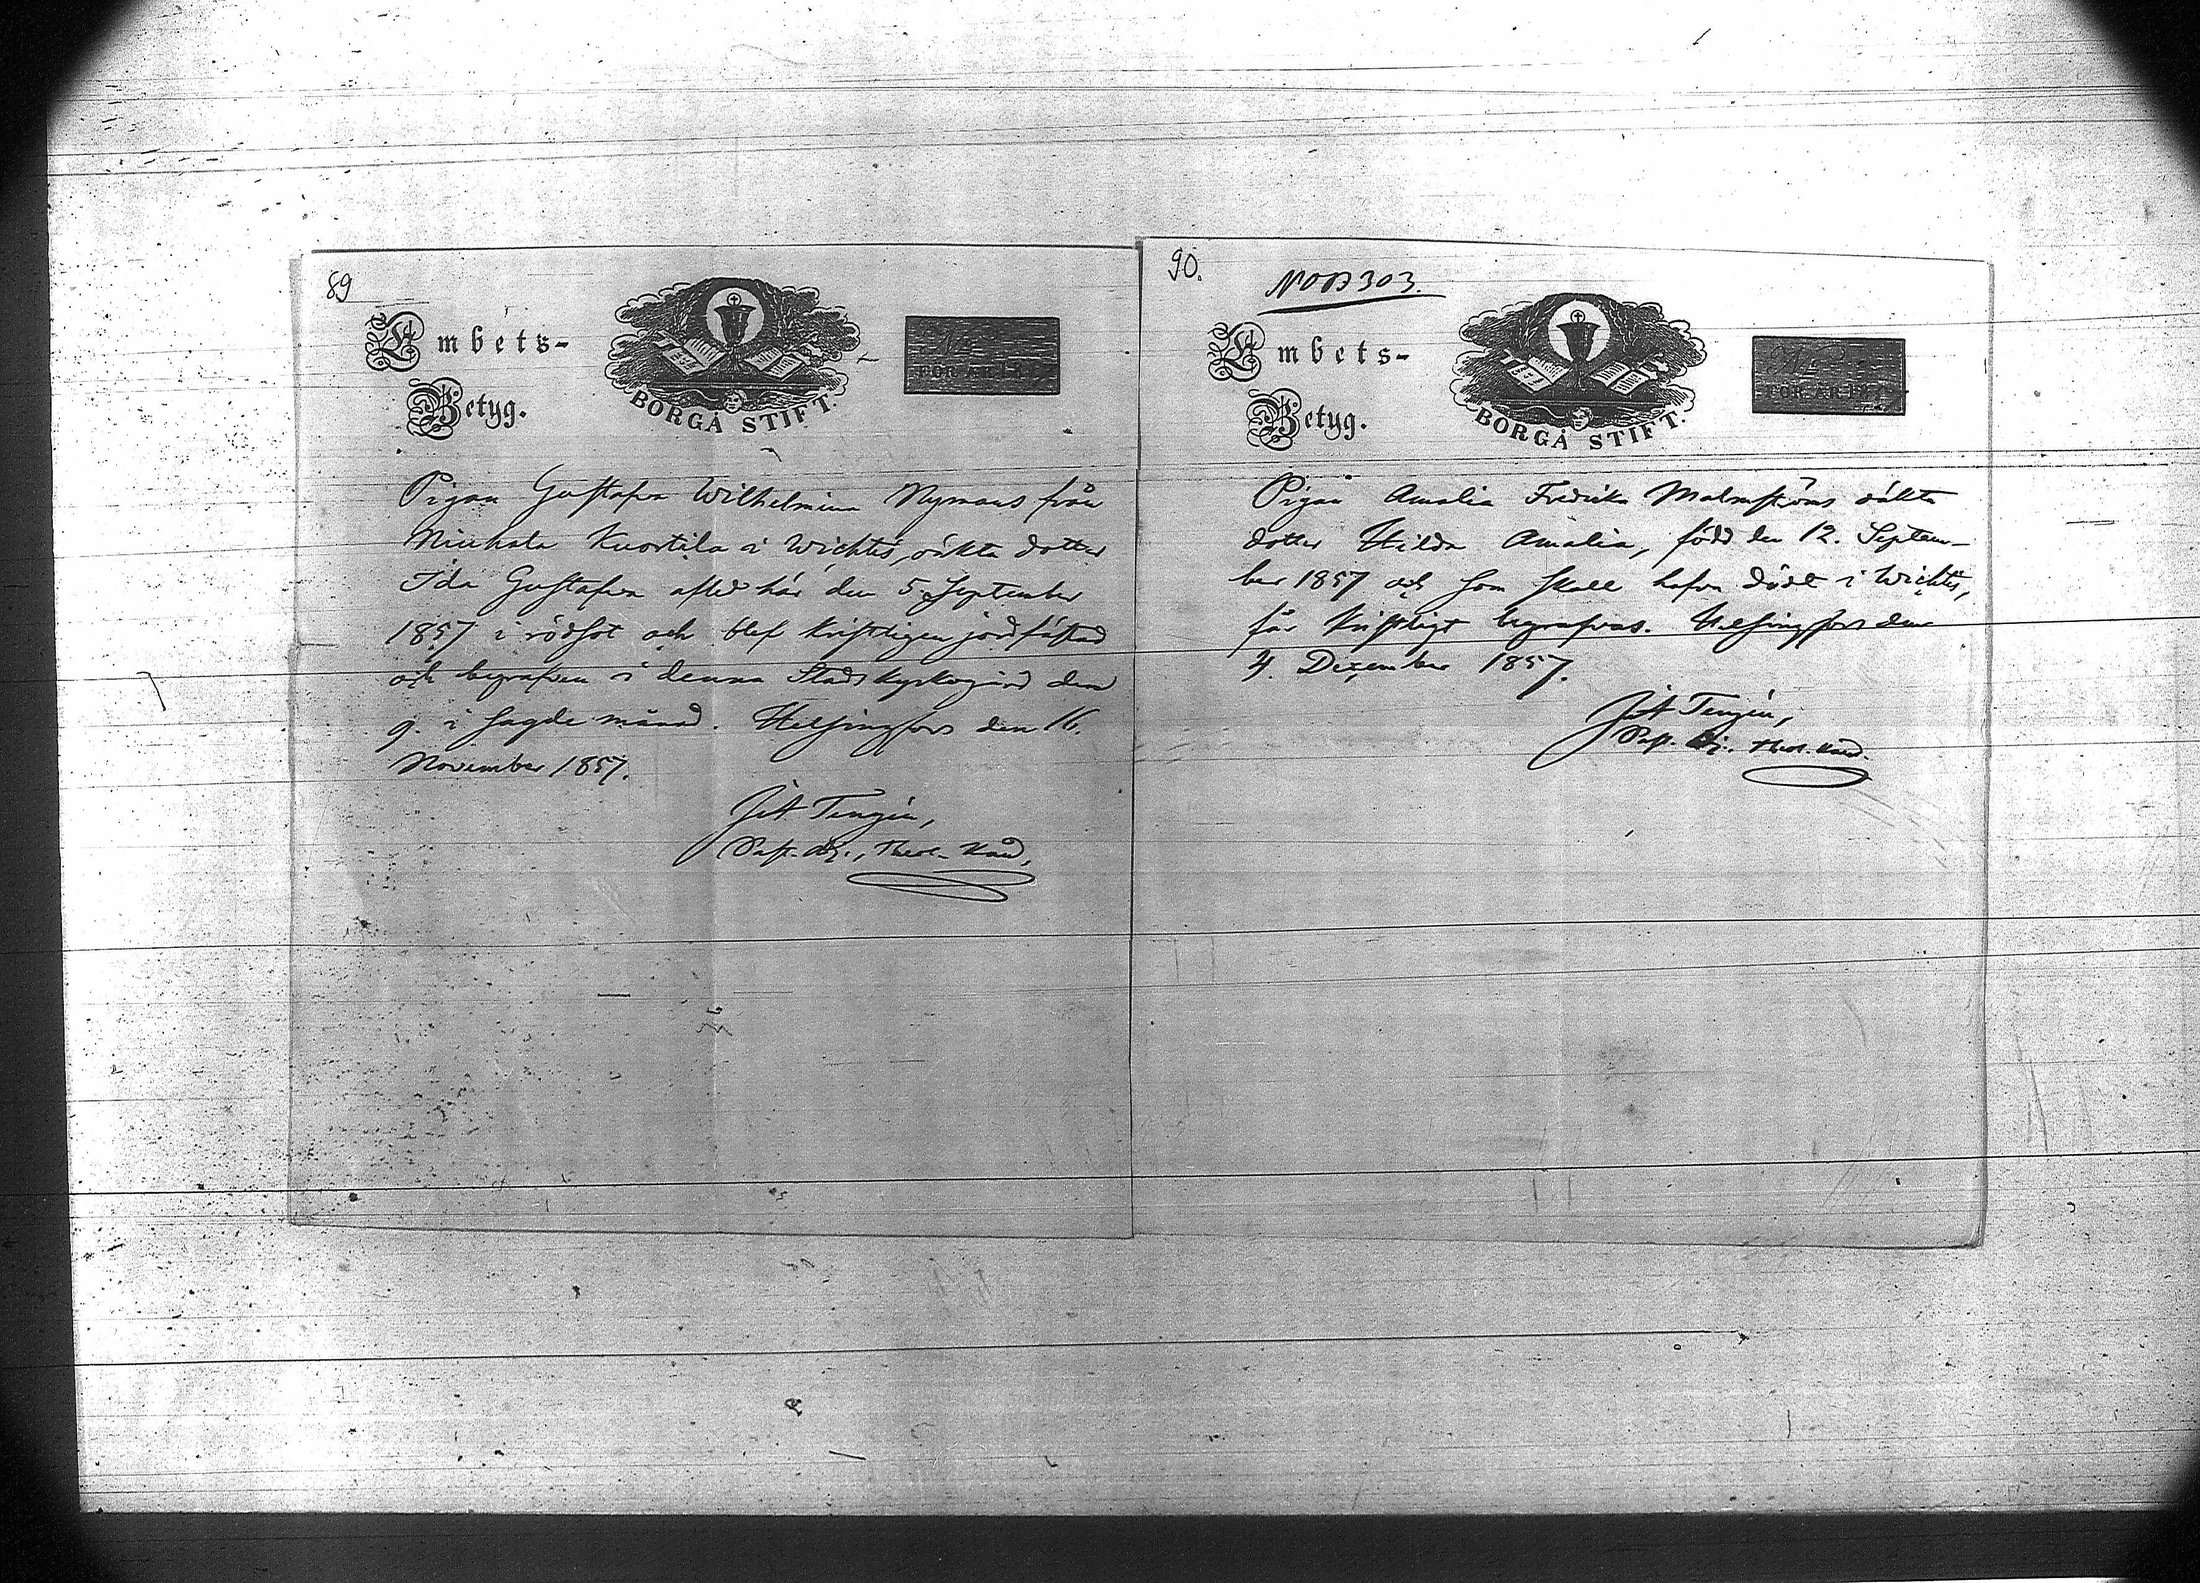 89
Embets-
Betyg.
BORGÅ STIFT.
FÖR ÅR
Pigan Gustafva Wilhelmina Nymans från
Niuhala Kuortila i Wichtis, oäkta dotter
Ida Gustafva afled här den 5 September
1857 i rödsot och blef kristligen jordfästad
och begrafven i denna Stads kyrkogård den
9. i sagde månad. Helsingfors den 16.
November 1857.
Tengén,
Past. adj., Theol. Kand.
90.
No 303.
Embets-
Betyg.
BORGÅ STIFT.
FÖR ÅR
Pigan Amalia Fredrika Malmströms oäkta
dotter Hilda Amalia, född den 12. Septem-
ber 1857 och som skall hafva dödt i Wichtis,
får kristligt begrafvas. Helsingfors den
4. December 1857.
Tengén,
Past. adj. Theol. Kand.